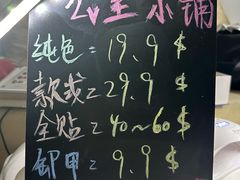 公主小铺
纯色=19.9$
款式=29.9$
全贴=40~60$
卸甲=9.9$